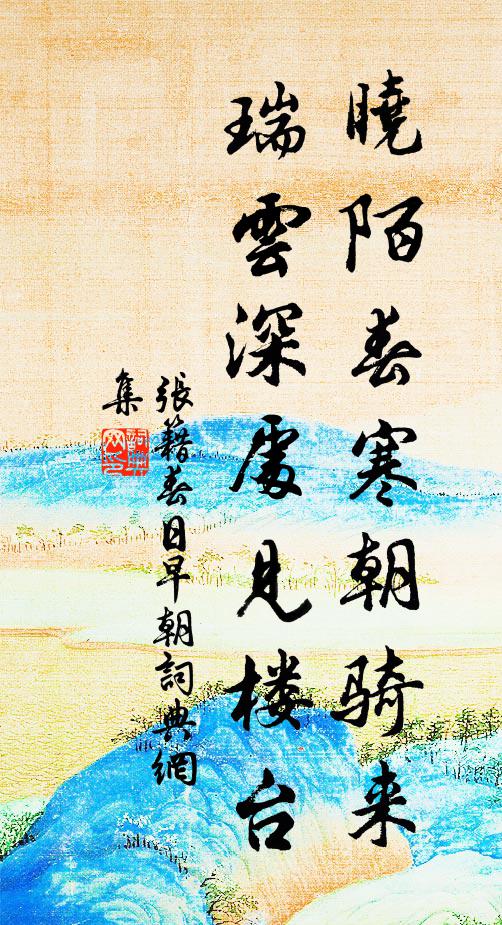 曉陌春寒朝骑来
瑞雲深處見楼台
張籍春日早朝詞典網
集